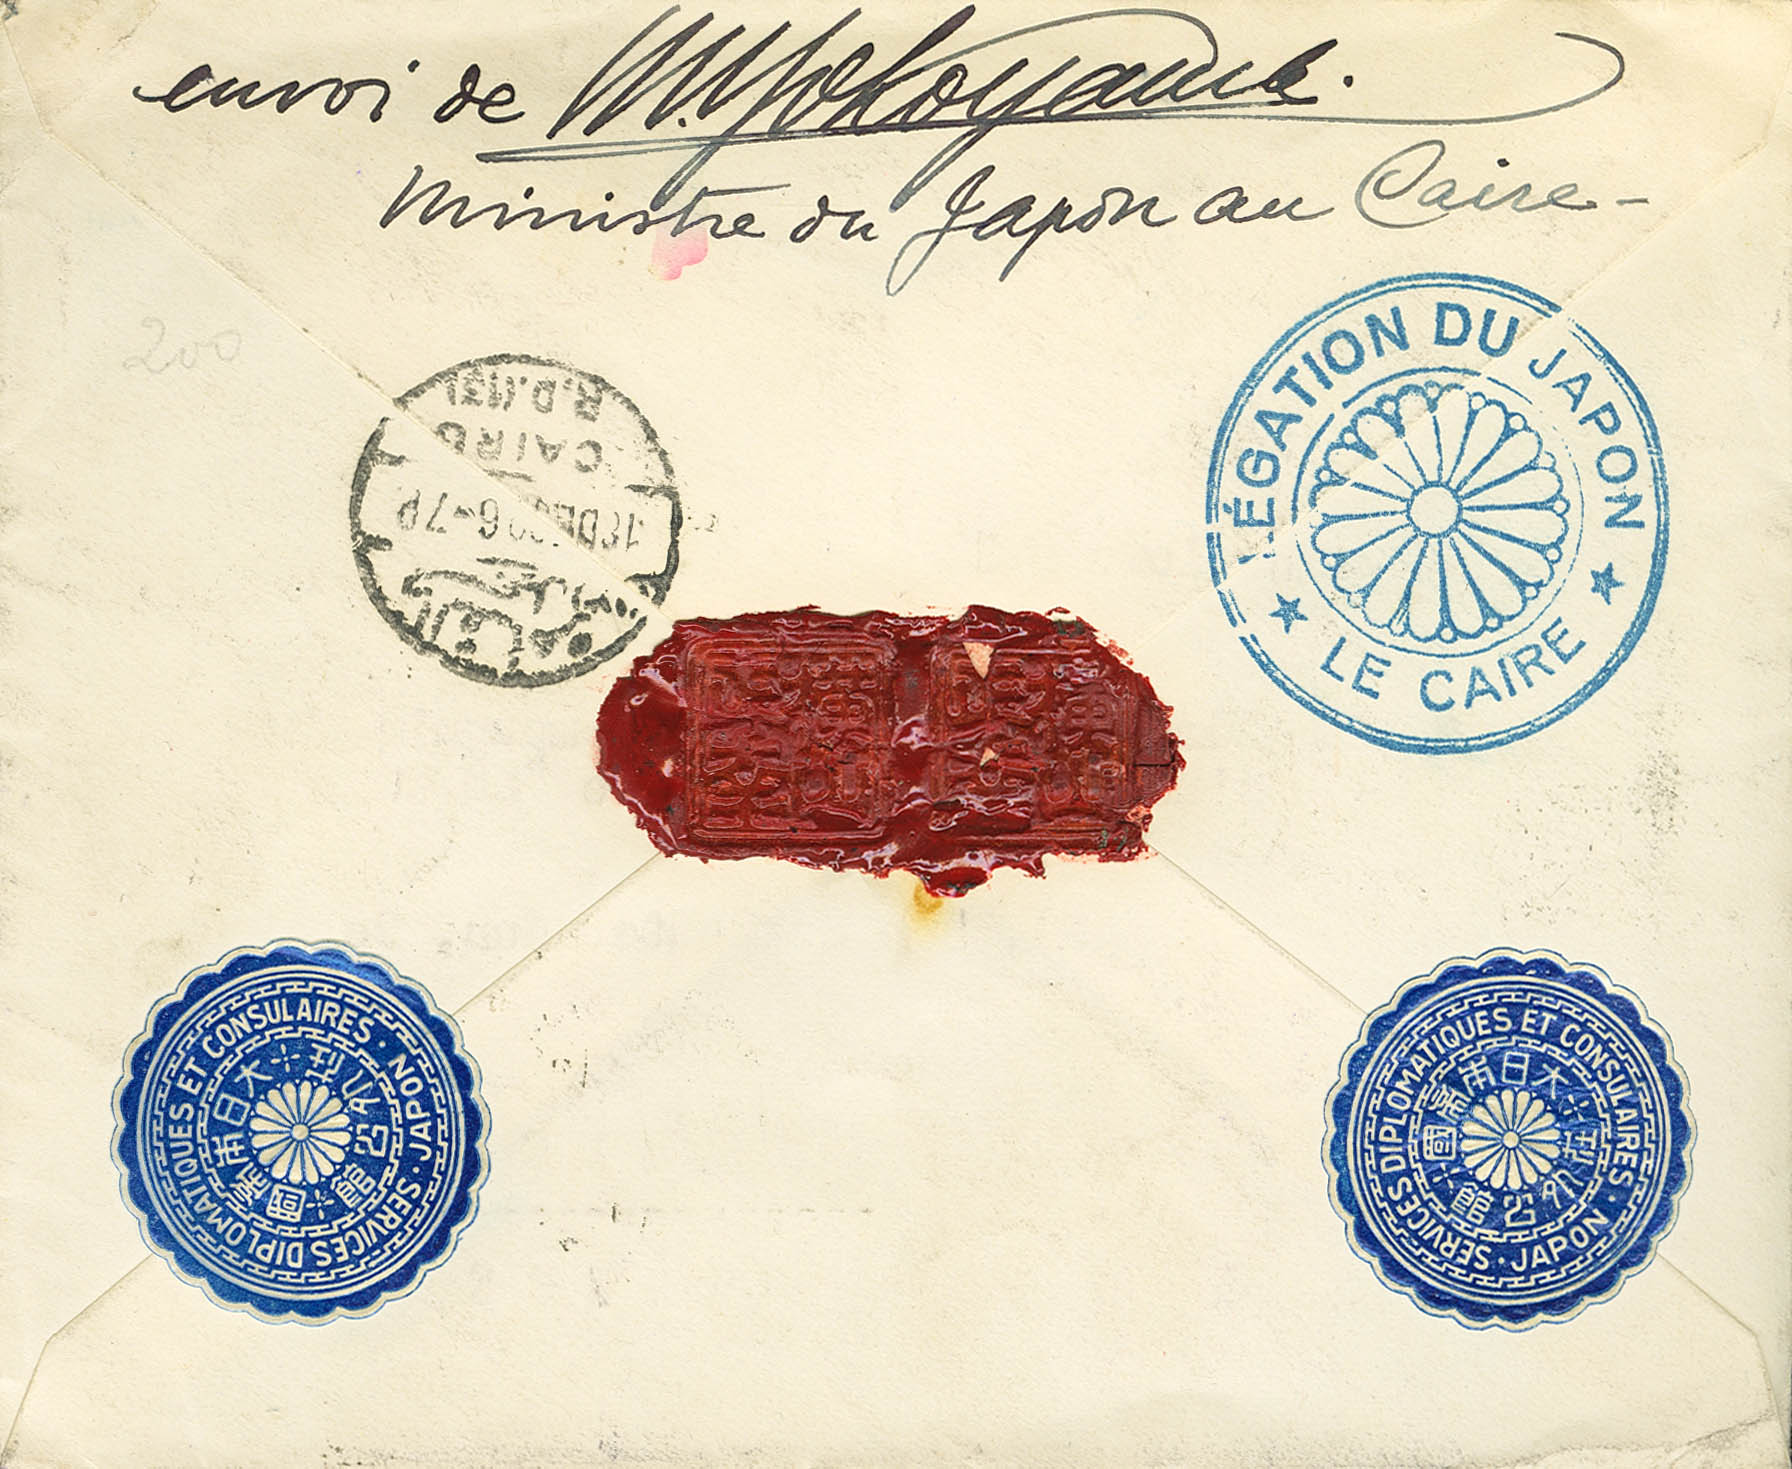 envoi de M. Yokoyama.
Ministre du Japon au Caire -
200
LÉGATION DU JAPON
★ LE CAIRE ★
R.D.(13)
CAIRO
18 DE 6-7P
القاهرة
SERVICES DIPLOMATIQUES ET CONSULAIRES · JAPON ·
大日本帝國
在外公館
SERVICES DIPLOMATIQUES ET CONSULAIRES · JAPON ·
大日本帝國
在外公館